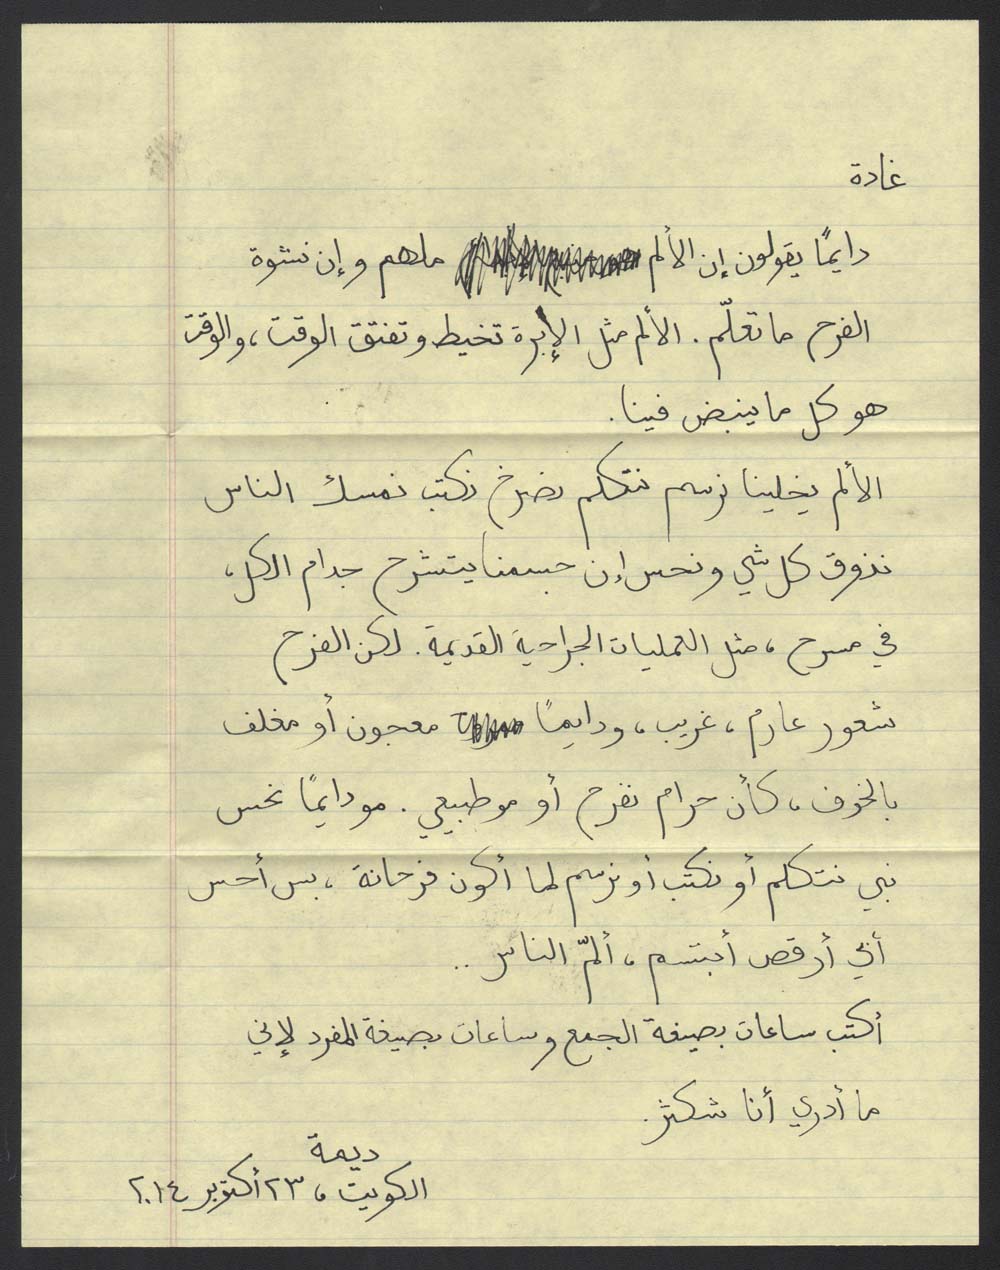 غادة
دايمًا يقولون إن الألم ملهم وإن نشوة
الفرح ما تعلّم. الألم مثل الإبرة تخيط وتفتق الوقت، والوقت
هو كل ما ينبض فينا.
الألم يخلينا نرسم نتكلم نصرخ نكتب نمسك الناس
نذوق كل شي ونحس إن جسمنا يتشرح جدام الكل،
في مسرح، مثل العمليات الجراحية القديمة. لكن الفرح
شعور عارم، غريب، ودايمًا معجون أو مغلف
بالخوف، كأن حرام نفرح أو مو طبيعي. مو دايمًا نحس
نبي نتكلم أو نكتب أو نرسم لما أكون فرحانة، بس أحس
أني أرقص أبتسم، ألمّ الناس..
أكتب ساعات بصيغة الجمع وساعات بصيغة المفرد لإني
ما أدري أنا شكثر.
ديمة
الكويت، ٢٣ أكتوبر ٢٠١٤